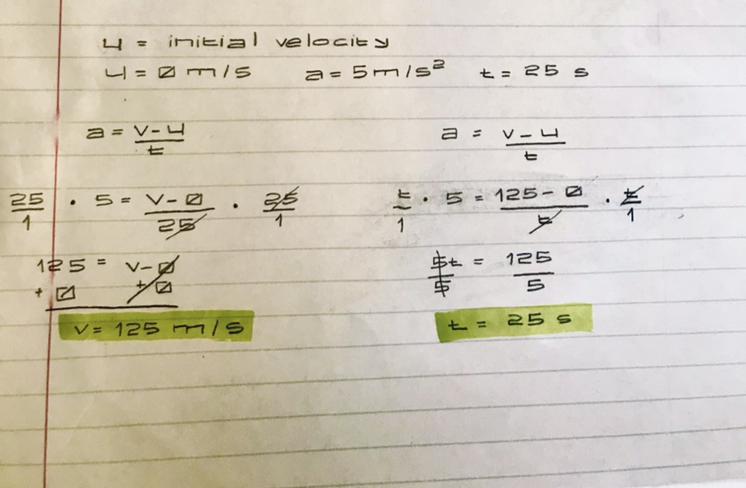 u = initial velocity
u = 0 m/s a = 5 m/s² t = 25 s
a = v - u / t
25/1 · 5 = v - 0 / 25 · 25/1
125 = v - 0
+ 0 + 0
v = 125 m/s
a = v - u / t
t/1 · 5 = 125 - 0 / t · t/1
5t/5 = 125/5
t = 25 s